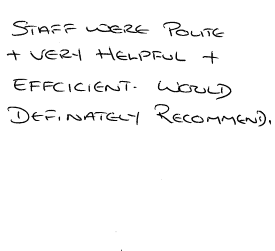 STAFF WERE POLITE
+ VERY HELPFUL +
EFFCICIENT. WOULD
DEFINATELY RECOMMEND.